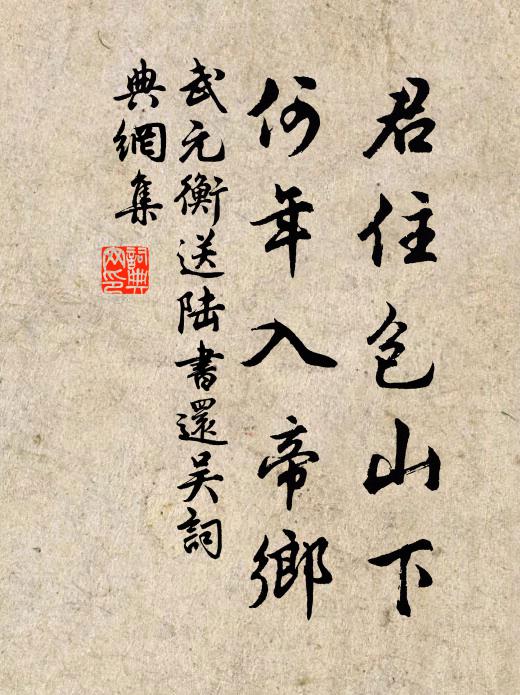 君住包山下
何年入帝鄉
武元衡送陸書還吴詞
典網集
詞典
网印